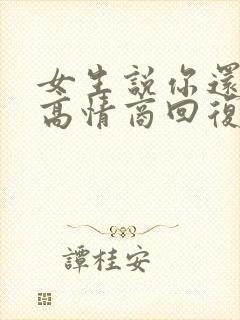 女生說你還
高情商回復
譚桂安